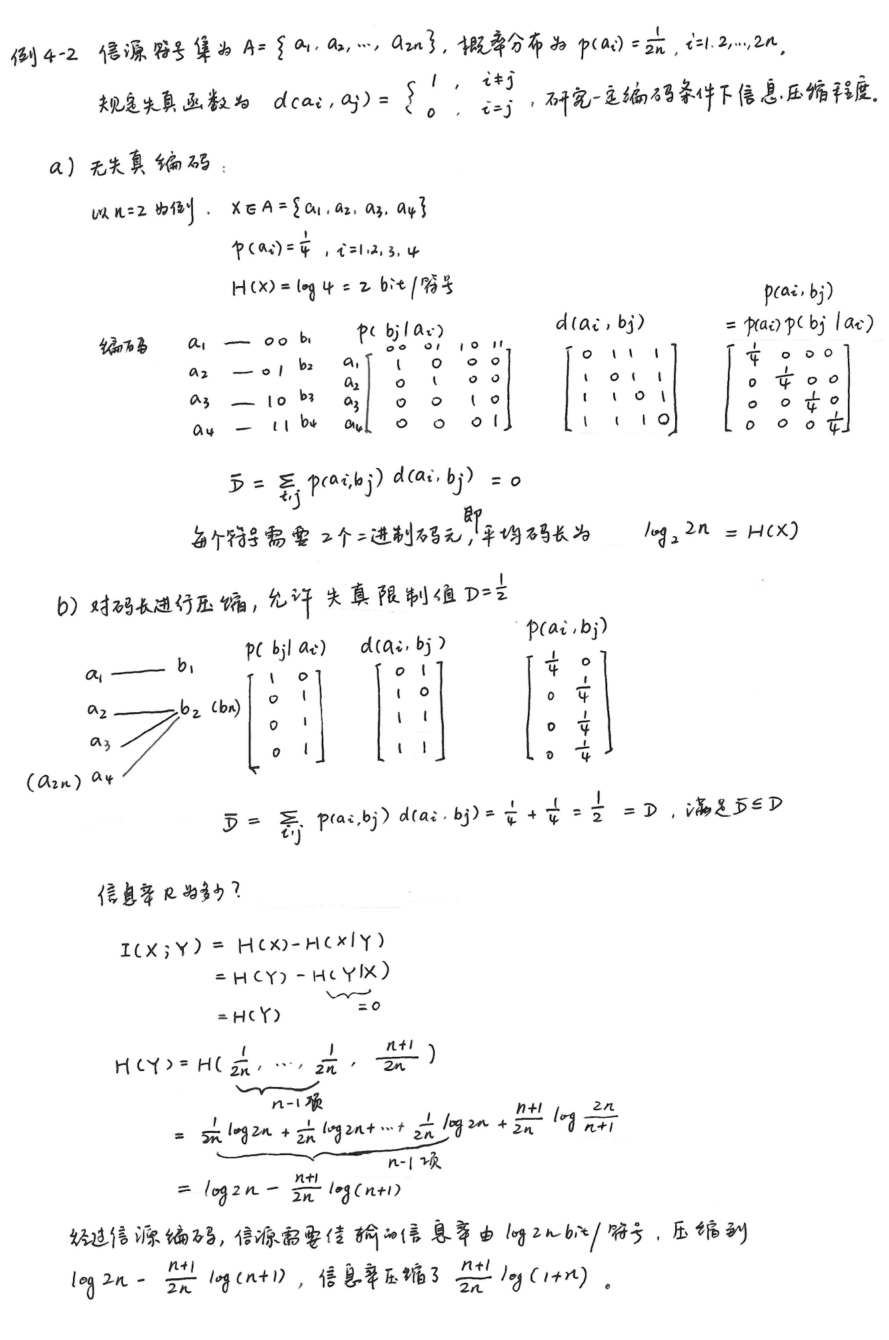 例4-2 信源符号集为 A={a₁, a₂, …, a₂ₙ}, 概率分布为 p(aᵢ)=1/2n, i=1.2,…,2n.
规定失真函数为 d(aᵢ, aⱼ) = { 1, i≠j ; 0, i=j , 研究一定编码条件下信息压缩程度.
a) 无失真编码:
以n=2为例. X∈A={a₁, a₂, a₃, a₄}
p(aᵢ)=1/4, i=1,2,3,4
H(X)=log 4 = 2 bit/符号
编码 a₁ — 00 b₁
a₂ — 01 b₂
a₃ — 10 b₃
a₄ — 11 b₄
p(bⱼ|aᵢ)
00 01 10 11
a₁ 1 0 0 0
a₂ 0 1 0 0
a₃ 0 0 1 0
a₄ 0 0 0 1
d(aᵢ, bⱼ)
0 1 1 1
1 0 1 1
1 1 0 1
1 1 1 0
p(aᵢ, bⱼ)
= p(aᵢ)p(bⱼ|aᵢ)
1/4 0 0 0
0 1/4 0 0
0 0 1/4 0
0 0 0 1/4
D̄ = Σ_{i,j} p(aᵢ,bⱼ) d(aᵢ, bⱼ) = 0
每个符号需要2个二进制码元,即平均码长为 log₂ 2n = H(X)
b) 对码长进行压缩, 允许失真限制值 D=1/2
a₁ — b₁
a₂ — b₂ (bn)
a₃
(a₂ₙ) a₄
p(bⱼ|aᵢ)
1 0
0 1
0 1
0 1
d(aᵢ, bⱼ)
0 1
1 0
1 1
1 1
p(aᵢ, bⱼ)
1/4 0
0 1/4
0 1/4
0 1/4
D̄ = Σ_{i,j} p(aᵢ,bⱼ) d(aᵢ, bⱼ) = 1/4 + 1/4 = 1/2 = D, 满足 D̄≤D
信息率R为多少?
I(X;Y) = H(X)-H(X|Y)
= H(Y) - H(Y|X)
=0
= H(Y)
H(Y) = H(1/2n, …, 1/2n, n+1/2n)
n-1项
= 1/2n log2n + 1/2n log2n + … + 1/2n log 2n + n+1/2n log 2n/n+1
n-1项
= log2n - n+1/2n log(n+1)
经过信源编码, 信源需要传输的信息率由 log2n bit/符号, 压缩到
log 2n - n+1/2n log(n+1), 信息率压缩了 n+1/2n log(1+n)。